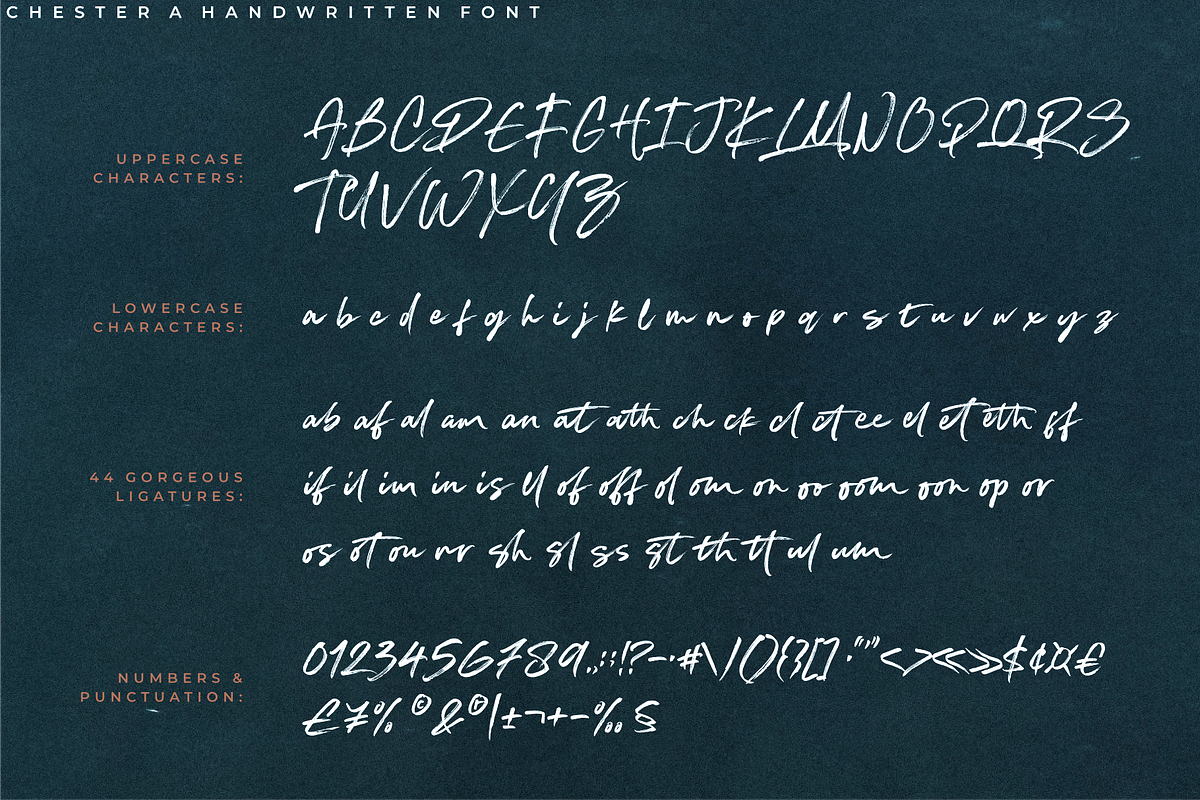 CHESTER A HANDWRITTEN FONT
UPPERCASE
CHARACTERS:
ABCDEFGHIJKLMNOPQRS
TUVWXYZ
LOWERCASE
CHARACTERS:
a b c d e f g h i j k l m n o p q r s t u v w x y z
44 GORGEOUS
LIGATURES:
ab af al am an at ath ch ck cl ct ee el et eth ff
if il im in is ll of off ol om on oo oom oon op or
os ot ou rr sh sl ss st th tt ul um
NUMBERS &
PUNCTUATION:
0123456789.,:;!?-·#\/(){}[]·"“”<>«»$¢¤€
£¥%©&®|±¬+−‰§